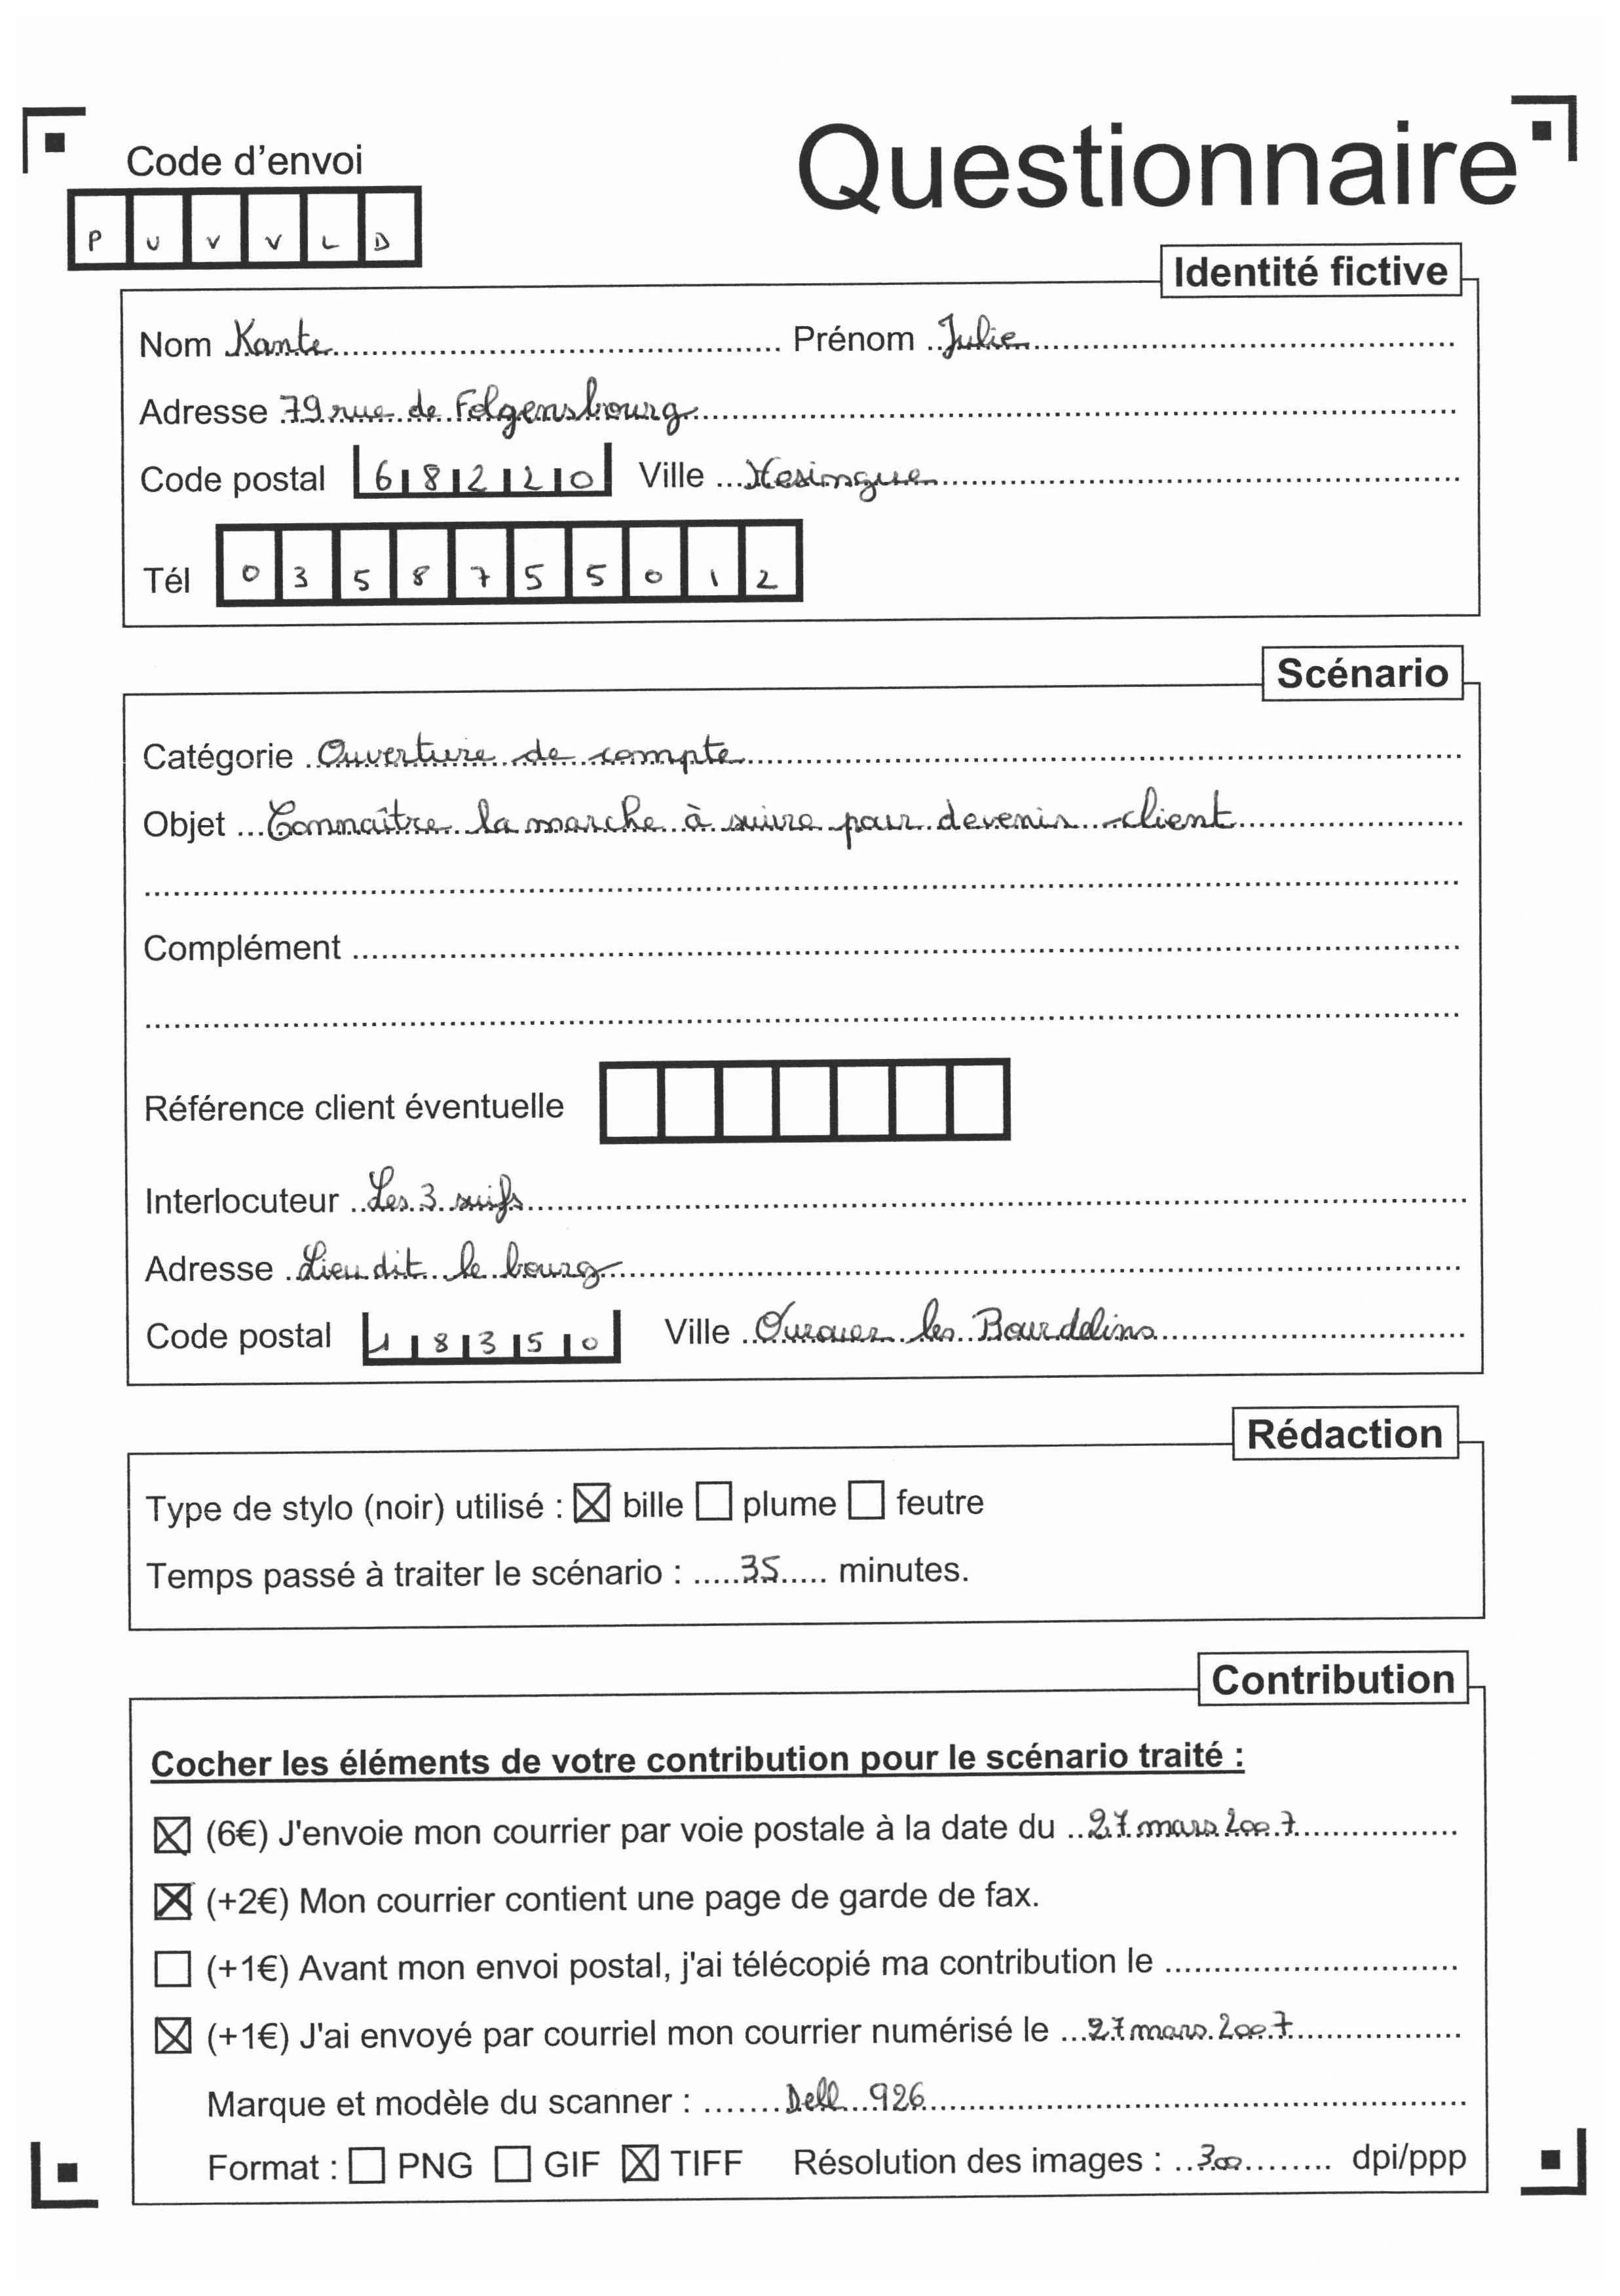 Questionnaire
Code d'envoi
P U V V L D
Identité fictive
Nom Kante Prénom Julie
Adresse 79 rue de Folgensbourg
Code postal 68220 Ville Hesingue
Tél 0358755012
Scénario
Catégorie Ouverture de compte
Objet Connaître la marche à suivre pour devenir client
Complément
Référence client éventuelle
Interlocuteur Les 3 suifs
Adresse Lieu dit le bourg
Code postal 18350 Ville Ourouer les Bourdelins
Rédaction
Type de stylo (noir) utilisé : ☒ bille ☐ plume ☐ feutre
Temps passé à traiter le scénario : 35 minutes.
Contribution
Cocher les éléments de votre contribution pour le scénario traité :
☒ (6€) J'envoie mon courrier par voie postale à la date du 27 mars 2007
☒ (+2€) Mon courrier contient une page de garde de fax.
☐ (+1€) Avant mon envoi postal, j'ai télécopié ma contribution le
☒ (+1€) J'ai envoyé par courriel mon courrier numérisé le 27 mars 2007
Marque et modèle du scanner : Dell 926
Format : ☐ PNG ☐ GIF ☒ TIFF Résolution des images : 300 dpi/ppp